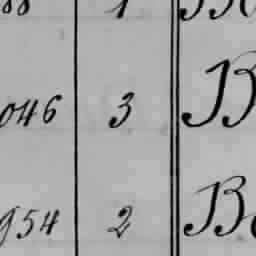 88 1
046 3 B
954 2 B